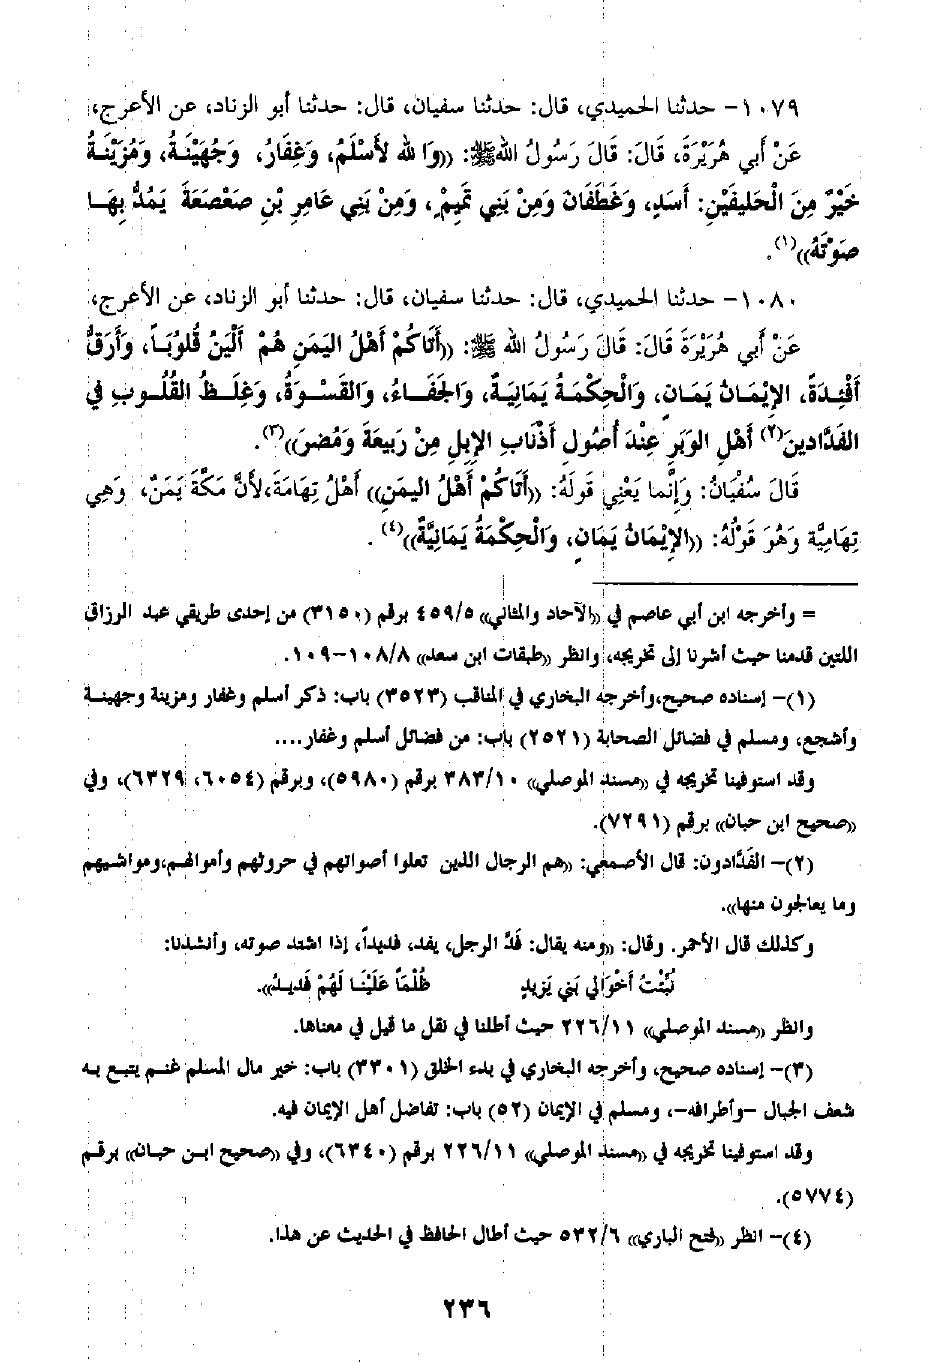 ١٠٧٩- حدثنا الحميدي، قال: حدثنا سفيان، قال: حدثنا أبو الزناد، عن الأعرج،
عَنْ أَبي هُرَيْرَةَ، قَالَ: قَالَ رَسُولُ اللهﷺ: ((وَا لله لأَسْلَمُ، وَغِفَارُ، وَجُهَيْنَـةُ، وَمُزَيْنَـةُ
خَيْرٌ مِنَ الْحَلِيفَيْنِ: أَسَدٍ، وَغَطَفَانَ وَمِنْ بَنِي تَمِيمْ، وَمِنْ بَنِي عَامِرِ بْنِ صَعْصَعَةَ يَمُدُّ بِهَـا
صَوْتَهُ))(١).
١٠٨٠- حدثنا الحميدي، قال: حدثنا سفيان، قال: حدثنا أبو الزناد، عن الأعرج،
عَنْ أَبي هُرَيْرَةَ قَالَ: قَالَ رَسُولُ الله ﷺ: ((أَتَاكُمْ أَهْلُ اليَمَنِ هُمْ أَلْيَنُ قُلُوبَـاً، وَأَرَقُّ
أَفْئِـدَةً، الإِيْمَـانُ يَمَـانٍ، وَالْحِكْمَـةُ يَمَانِيَـةٌ، وَالجَفَـاءُ، وَالقَسْـوَةُ، وَغِلَـظُ القُلُـوبِ فِي
الفَدَّادينَ(٢) أَهْلِ الوَبَرِ عِنْدَ أُصُولِ أَذْنَابِ الإِبِلِ مِنْ رَبِيعَةَ وَمُضَرَ))(٣).
قَالَ سُفْيَانُ: وَإِنَّما يَعْنِي قَولَهُ: ((أَتَاكُمْ أَهْلُ اليـمَنِ)) أَهْلُ تِهَامَةَ،لأَنَّ مَكَّةَ يَمَنٌ، وَهِي
تِهَامِيَّة وَهُوَ قَوْلُهُ: ((الإِيْمَانُ يَمَانٍ، وَالْحِكْمَةُ يَمَانِيَّةٌ))(٤) .
= وأخرجه ابن أبي عاصم في ((الآحاد والمثاني)) ٤٥٩/٥ برقم (٣١٥٠) من إحدى طريقي عبد الرزاق
اللتين قدمنا حيث أشرنا إلى تخريجه، وانظر ((طبقات ابن سعد)) ١٠٨/٨-١٠٩.
(١)- إسناده صحيح،وأخرجه البخاري في المناقب (٣٥٢٣) باب: ذكر أسلم وغفار ومزينة وجهينـة
وأشجع، ومسلم في فضائل الصحابة (٢٥٢١) باب: من فضائل أسلم وغفار....
وقد استوفينا تخريجه في ((مسند الموصلي)) ٣٨٣/١٠ برقم (٥٩٨٠)، وبرقم (٦٠٥٤، ٦٣٢٩)، وفي
((صحيح ابن حبان)) برقم (٧٢٩١).
(٢)- الفَدَّادون: قال الأصمعي: ((هم الرجال الذين تعلوا أصواتهم في حروثهم وأموالهم،ومواشيهم
وما يعالجون منها)).
وكذلك قال الأحمر. وقال: ((ومنه يقال: فَدَّ الرجل، يفد، فديداً، إذا اشتد صوته، وأنشدنا:
نُبِّئْتُ أَخْوَالي بَني يَزيدٍ ظُلْمَاً عَلَيْنَـا لَهُمْ فَديـدُ)).
وانظر ((مسند الموصلي)) ٢٢٦/١١ حيث أطلنا في نقل ما قيل في معناها.
(٣)- إسناده صحيح، وأخرجه البخاري في بدء الخلق (٣٣٠١) باب: خير مال المسلم غنـم يتبع بـه
شعف الجبال -وأطرافه-، ومسلم في الإيمان (٥٢) باب: تفاضل أهل الإيمان فيه.
وقد استوفينا تخريجه في ((مسند الموصلي)) ٢٢٦/١١ برقم (٦٣٤٠)، وفي ((صحيح ابـن حبـان)) برقـم
(٥٧٧٤).
(٤)- انظر ((فتح الباري)) ٥٣٢/٦ حيث أطال الحافظ في الحديث عن هذا.
٢٣٦